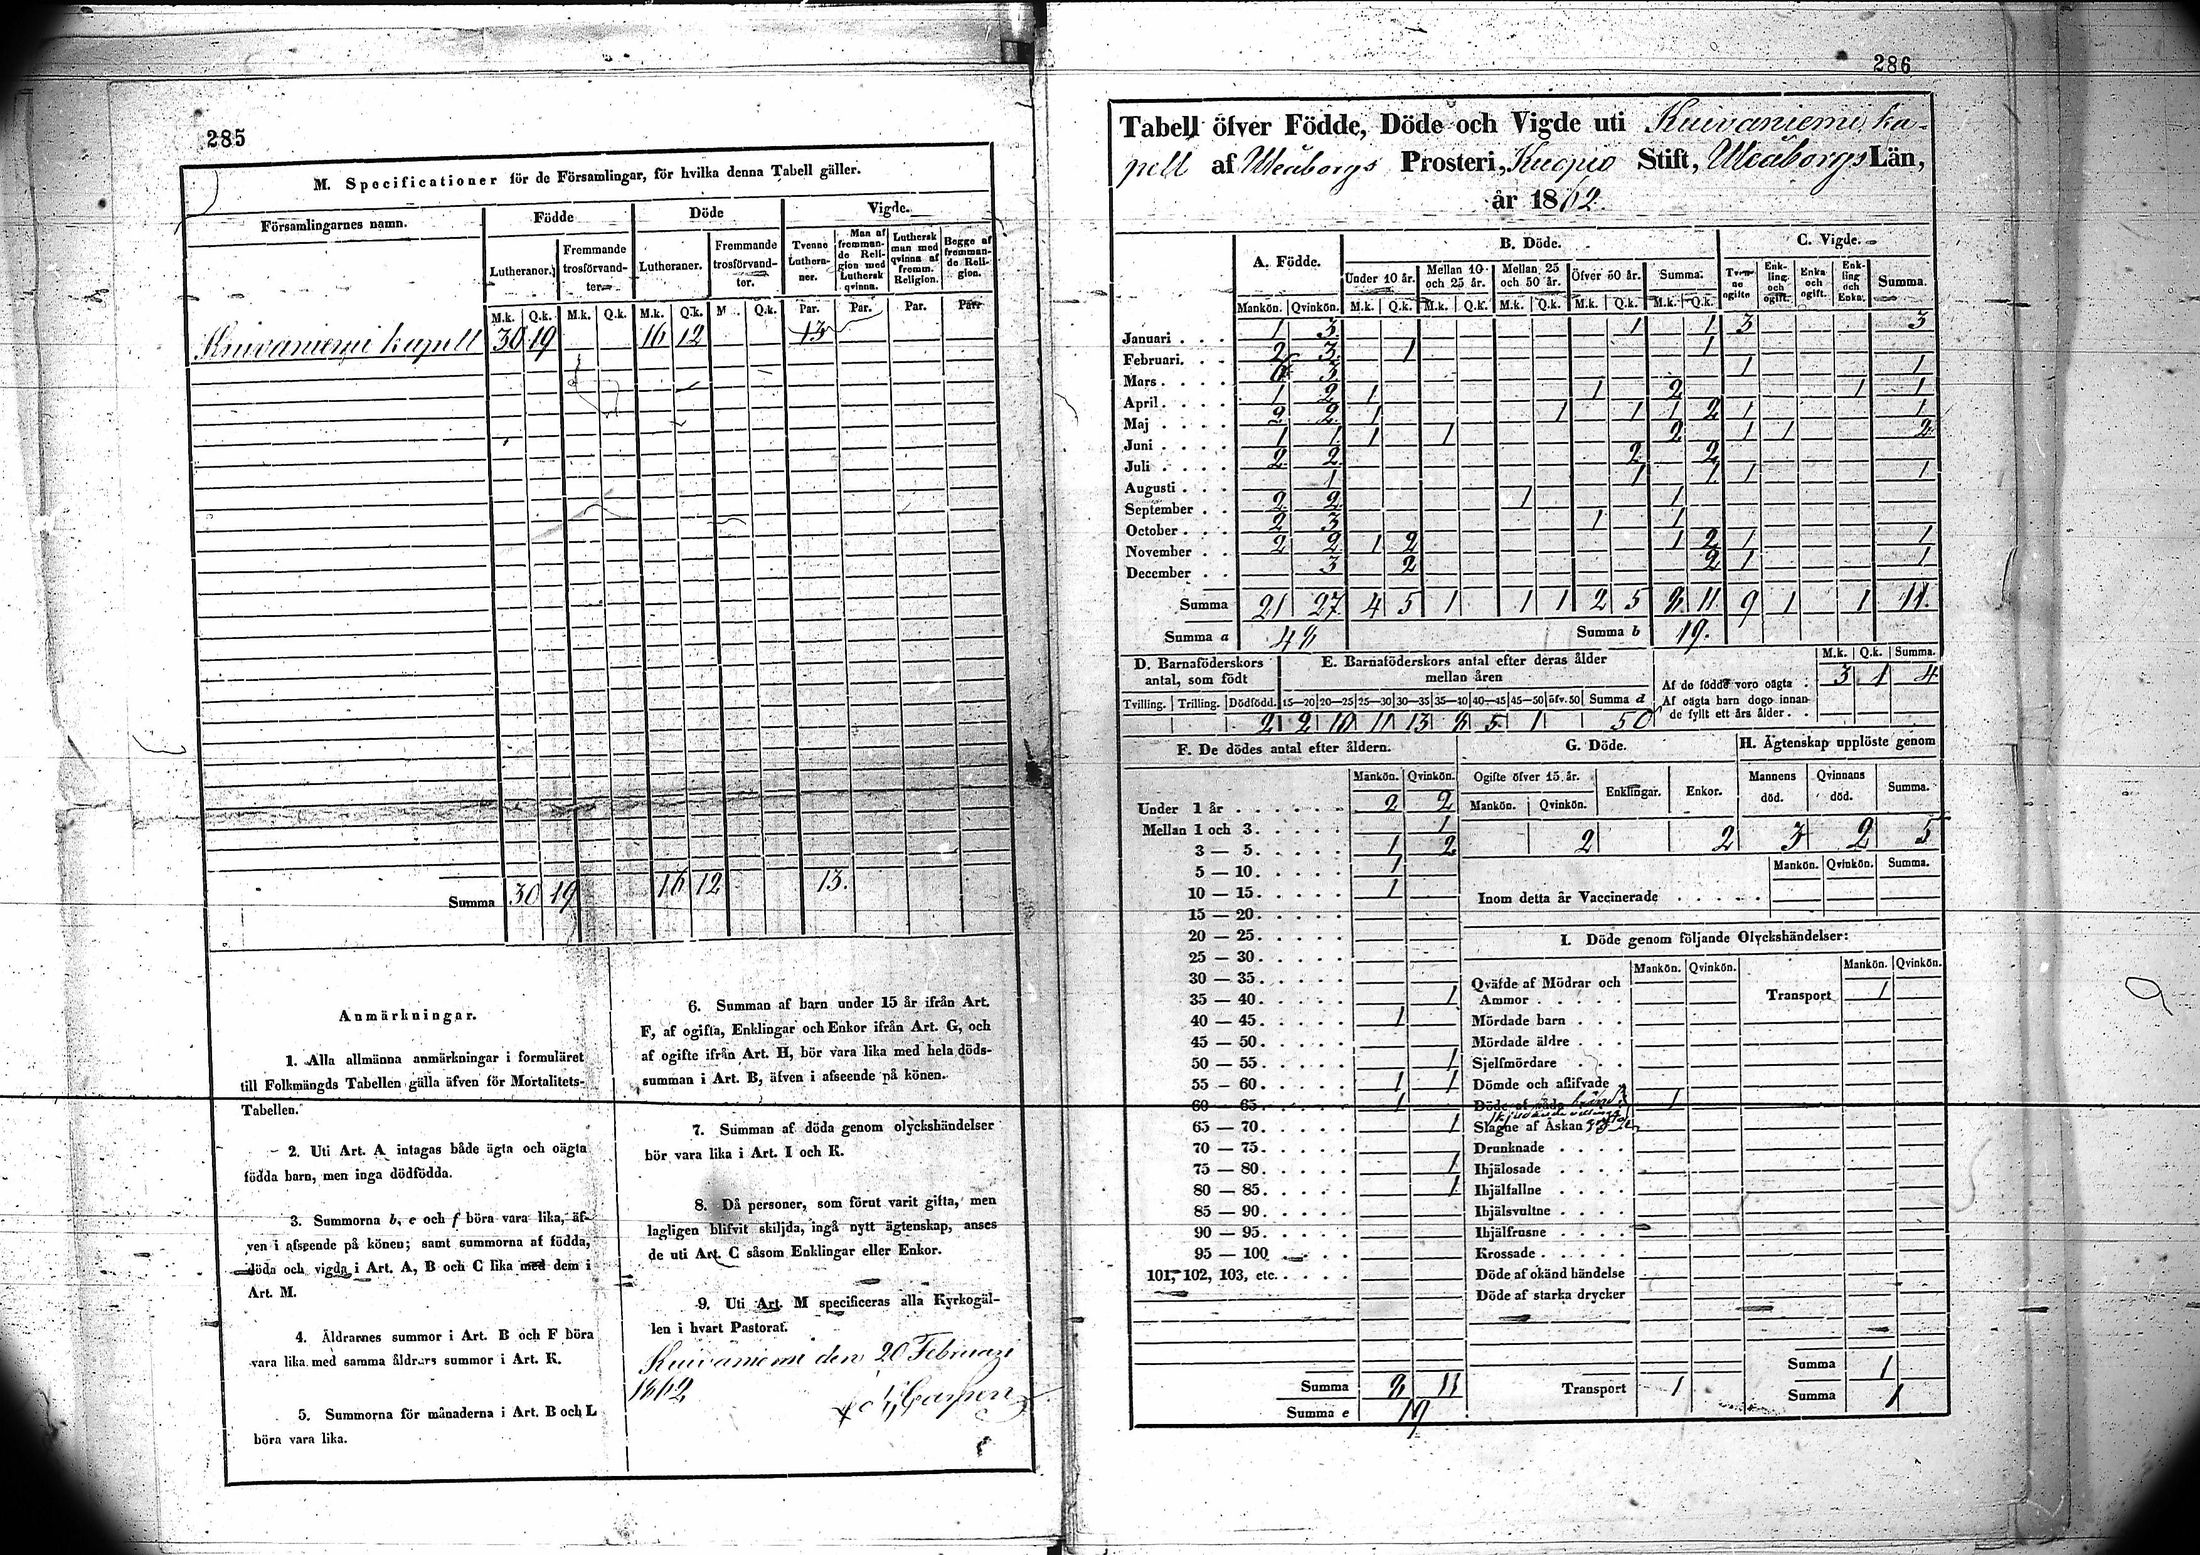 285
M. Specificationer för de Församlingar, för hvilka denna Tabell gäller.
Församlingarnes namn. Födde Döde Vigde.
Lutheraner. Fremmande trosförvandter. Lutheraner. Fremmande trosförvandter. Tvenne Lutheraner. Man af fremmande Religion med Luthersk qvinna. Luthersk man med qvinna af fremm. Religion. Begge af fremmande Religion.
M.k. Q.k. M.k. Q.k. M.k. Q.k. M. Q.k. Par. Par. Par. Par.
Kuivaniemi kapell 30 19 16 12 13
Summa 30 19 16 12 13.
Anmärkningar.
1. Alla allmänna anmärkningar i formuläret
till Folkmängds Tabellen gälla äfven för Mortalitets-
Tabellen.
2. Uti Art. A intagas både ägta och oägta
födda barn, men inga dödfödda.
3. Summorna b, e och f böra vara lika, äf-
ven i afseende på könen; samt summorna af födda,
döda och vigda i Art. A, B och C lika med dem i
Art. M.
4. Äldrarnes summor i Art. B och F böra
vara lika med samma åldrars summor i Art. K.
5. Summorna för månaderna i Art. B och L
böra vara lika.
6. Summan af barn under 15 år ifrån Art.
F, af ogifta, Enklingar och Enkor ifrån Art. G, och
af ogifte ifrån Art. H, bör vara lika med hela döds-
summan i Art. B, äfven i afseende på könen.
7. Summan af döda genom olyckshändelser
bör vara lika i Art. I och K.
8. Då personer, som förut varit gifta, men
lagligen blifvit skiljda, ingå nytt ägtenskap, anses
de uti Art. C såsom Enklingar eller Enkor.
9. Uti Art. M specificeras alla Kyrkogäl-
len i hvart Pastorat.
Kuivaniemi den 20 Februari
1862
286
Tabell öfver Födde, Döde och Vigde uti Kuivaniemi ka-
pell af Uleåborgs Prosteri, Kuopio Stift, Uleåborgs Län,
år 1862.
A. Födde. B. Döde. C. Vigde.
Under 10 år. Mellan 10 och 25 år. Mellan 25 och 50 år. Öfver 50 år. Summa. Tvenne ogifte Enkling och ogift. Enka och ogift. Enkling och Enka. Summa.
Mankön. Qvinkön. M.k. Q.k. M.k. Q.k. M.k. Q.k. M.k. Q.k. M.k. Q.k.
Januari 1 3 1 1 3 3
Februari 2 3 1 1
Mars 6 3 1 1
April 1 2 1 1 2 1 1
Maj 2 2 1 1 1 1 2 1 1
Juni 1 1 1 1 2 1 1 2
Juli 2 2 2 2
Augusti 1 1 1 1 1
September 2 2 1 1
October 2 3 1 1
November 2 2 1 2 1 2 1 1
December 3 2 2 1 1
Summa 21 27 4 5 1 1 1 2 5 8 11 9 1 1 11.
Summa a 48 Summa b 19.
D. Barnaföderskors antal, som födt
E. Barnaföderskors antal efter deras ålder mellan åren
M.k. Q.k. Summa.
Af de födde voro oägta 3 1 4
Af oägta barn dogo innan
de fyllt ett års ålder
Tvilling. Trilling. Dödfödd. 15—20 20—25 25—30 30—35 35—40 40—45 45—50 öfv. 50 Summa d
2 2 10 11 13 8 5 1 50
F. De dödes antal efter åldern.
Mankön. Qvinkön.
Under 1 år 2 2
Mellan 1 och 3. 1
3 — 5. 1 2
5 — 10. 1
10 — 15. 1
15 — 20.
20 — 25.
25 — 30.
30 — 35.
35 — 40. 1
40 — 45. 1
45 — 50.
50 — 55. 1
55 — 60. 1 1
60 — 65. 1
65 — 70. 1
70 — 75.
75 — 80. 1
80 — 85. 1
85 — 90.
90 — 95.
95 — 100
101, 102, 103, etc.
Summa 8 11
Summa e 19
G. Döde.
Ogifte öfver 15 år. Enklingar. Enkor.
Mankön. Qvinkön.
2 2
H. Ägtenskap upplöste genom
Mannens död. Qvinnans död. Summa.
3 2 5
Mankön. Qvinkön. Summa.
Inom detta år Vaccinerade
I. Döde genom följande Olyckshändelser:
Mankön. Qvinkön. Mankön. Qvinkön.
Qväfde af Mödrar och
Ammor
Transport 1
Mördade barn
Mördade äldre
Sjelfmördare
Dömde och aflifvade
Döde af våda 1
Slagne af Åskan
Drunknade
Ihjälosade
Ihjälfallne
Ihjälsvultne
Ihjälfrusne
Krossade
Döde af okänd händelse
Döde af starka drycker
Summa 1
Transport 1 Summa 1